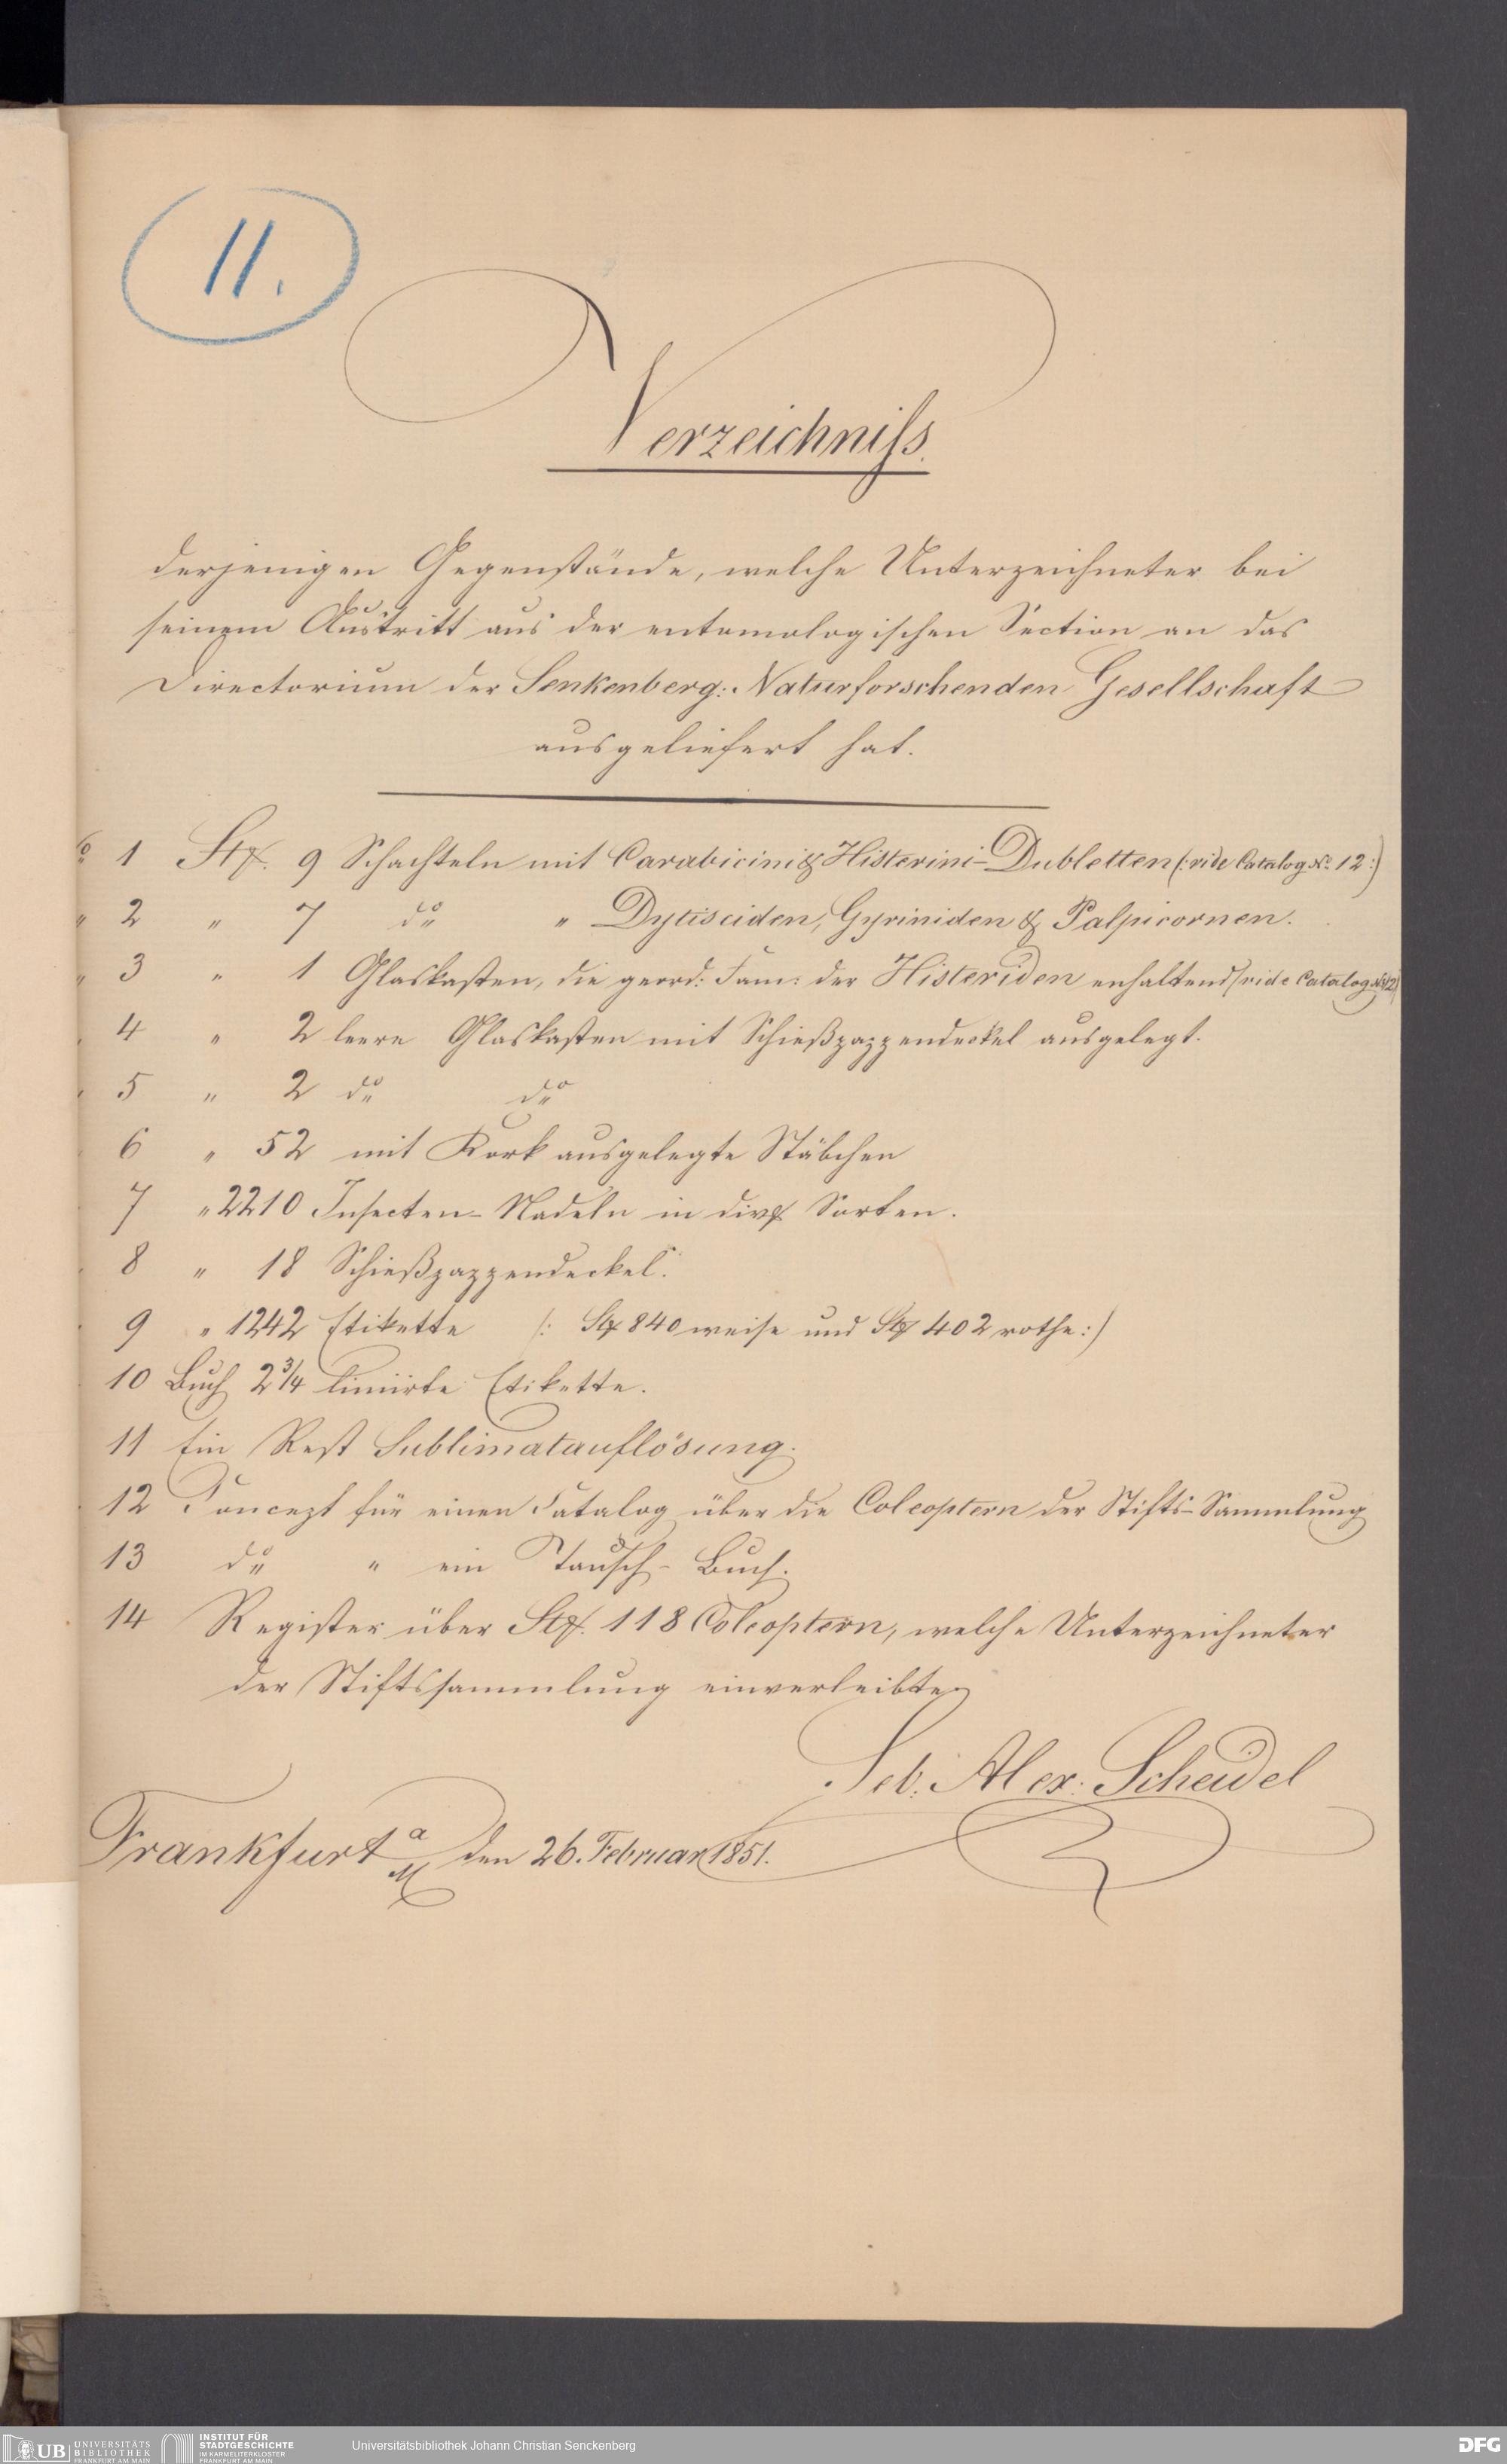 11.
Verzeichniſs.
derjenigen Gegenstände, welche Unterzeichneter bei
seinem Austritt aus der entomologischen Section an das
Directorium der Senkenberg: Naturforschenden Gesellschaft
ausgeliefert hat.
No 1 Stx. 9 Schachteln mit Carabicini & Histerini-Dubletten (: vide Catalog No 12 :)
" 2 " 7 do " Dytisciden, Gyriniden & Palpicornen.
" 3 " 1 Glaskasten, die geord: Fam: der Histeriden enhaltend (vide Catalog No 12)
" 4 " 2 leere Glaskasten mit Schießpappendeckel ausgelegt.
" 5 " 2 do do
" 6 " 52 mit Kork ausgelegte Stäbchen
7 " 2210 Insecten-Nadeln in divs Sorten.
" 8 " 18 Schießpappendeckel.
" 9 " 1242 Etikette (: Stx 840 weise und Stx 402 rothe :)
" 10 Buch 2 3/4 liniirte Etikette.
11 Ein Rest Sublimatauflösung.
" 12 Concept für einen Catalog über die Coleoptern der Stifts-Sammlung
13 do " ein Tausch-Buch.
14 Register über Stx. 118 Coleoptern, welche Unterzeichneter
der Stiftssammlung einverleibte.
Seb. Alex. Scheidel
Frankfurt a/M den 26. Februar 1851.
UB UNIVERSITÄTS BIBLIOTHEK FRANKFURT AM MAIN
INSTITUT FÜR STADTGESCHICHTE IM KARMELITERKLOSTER FRANKFURT AM MAIN
Universitätsbibliothek Johann Christian Senckenberg
DFG